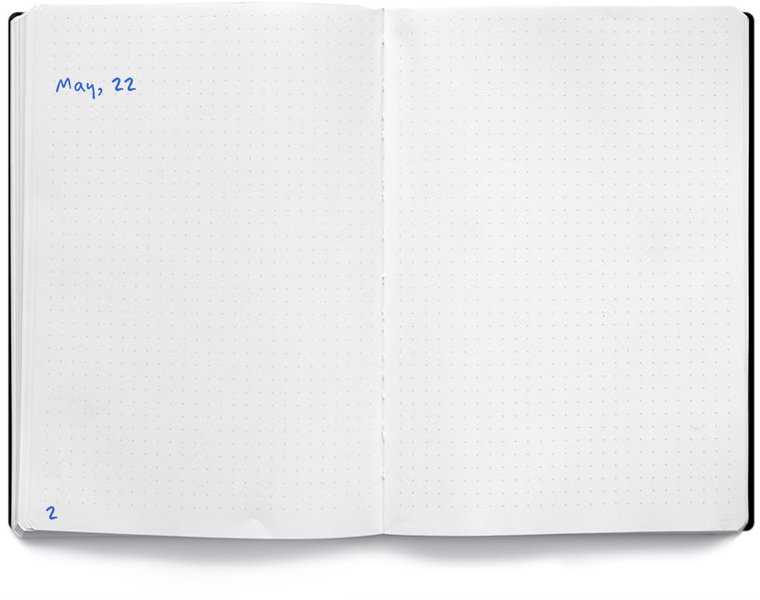 May, 22
2